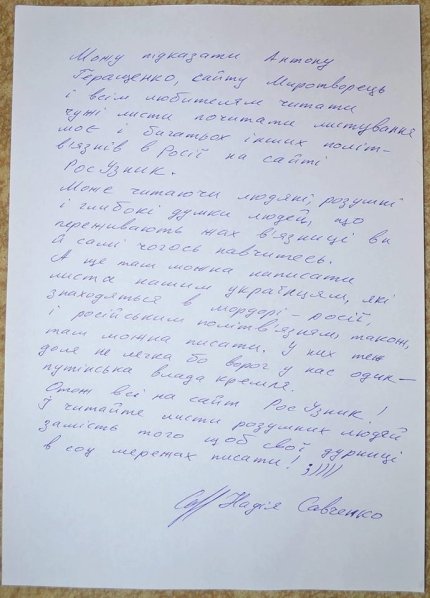 Можу підказати Антону
Геращенко, сайту Миротворець
і всім любителям читати
чужі листи почитати листування
моє і багатьох інших політ-
вязнів в Росії на сайті
РосУзник.
Може читаючи людяні, розумні
і глибокі думки людей, що
переживають жах в'язниці ви
й самі чогось навчитесь.
А ще там можна написати
листа нашим українцям, які
знаходяться в мордорі - росії,
і російським політв'язням, також,
там можна писати. У них теж
доля не легка бо ворог у нас один -
путінська влада кремля.
Отож всі на сайт РосУзник!
Й читайте листи розумних людей
замість того щоб свої дурниці
в соц мережах писати! ;))))
Надія Савченко